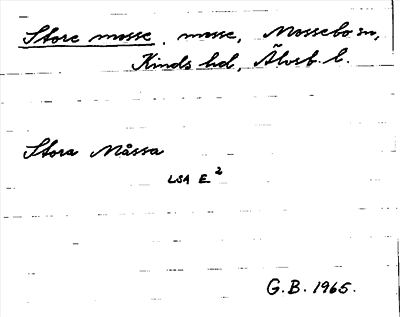 Store mosse, mosse, Mossebo sn,
Kinds hd, Älvsb. l.
Stora Måssa
LSA E ²
G. B. 1965.